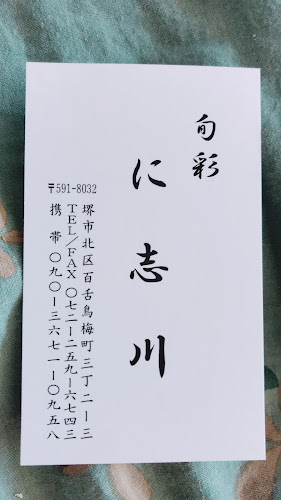 旬彩
に志川
〒591-8032
堺市北区百舌鳥梅町三丁二ー三
TEL/FAX 〇七二ー二五九ー六七四三
携帯 〇九〇ー三六七一ー〇九五八